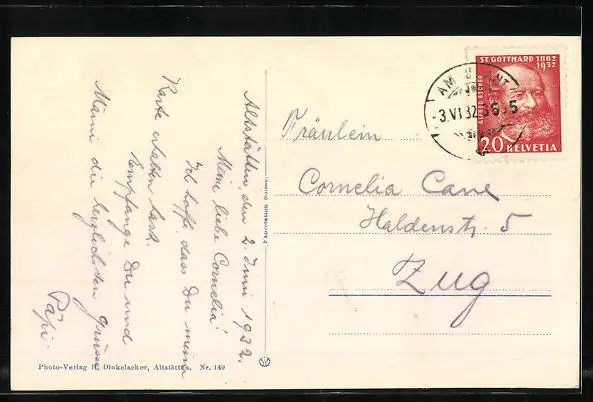 Altstätten, den 2. Juni 1932.
Meine liebe Cornelia!
Ich hoffe, dass Du meine
Karte erhalten hast.
Empfange Du und
Mämi die herzlichsten Grüsse
Päpi
Fräulein
Cornelia Cane
Haldenstr. 5
Zug
ST. GOTTHARD 1882
1932
ALFRED ESCHER
20 HELVETIA
-3.VI.32
Photo-Verlag H. Dinkelacker, Altstätten. Nr. 149